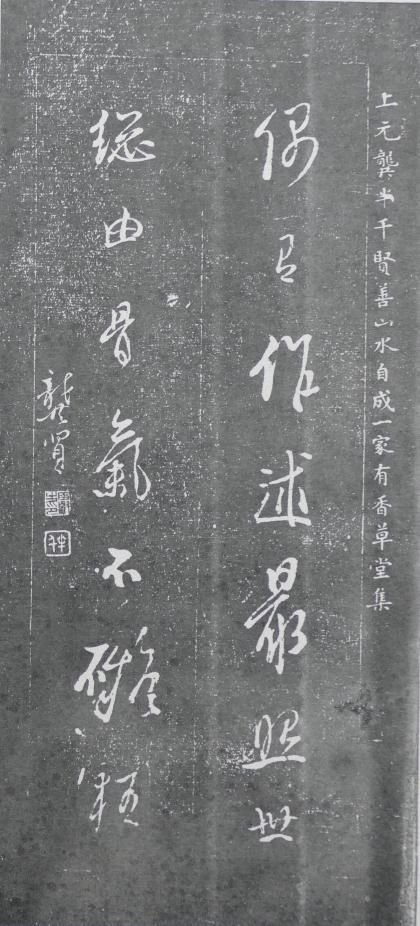 上元龔半千賢善山水自成一家有香草堂集
偶有作述最照世
総由骨氣不礙粗
龔賢